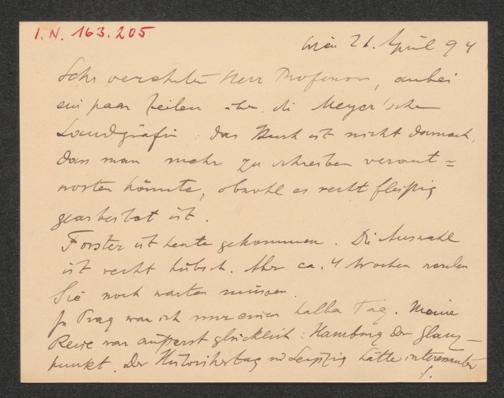 I.N. 163.205
Wien 26. April 94
Sehr verehrter Herr Professor, anbei
ein paar Zeilen über die Meyer'sche
Landgräfin: das Buch ist nicht darnach,
dass man mehr zu schreiben verant=
worten könnte, obwohl es recht fleißig
gearbeitet ist.
Forster ist heute gekommen. Die Auswahl
ist recht hübsch. Aber ca. 4 Wochen werden
Sie noch warten müssen.
In Prag war ich nur einen halben Tag. Meine
Reise war äußerst glücklich: Hamburg der Glanz-
punkt. Der Historikertag in Leipzig hätte interessanter